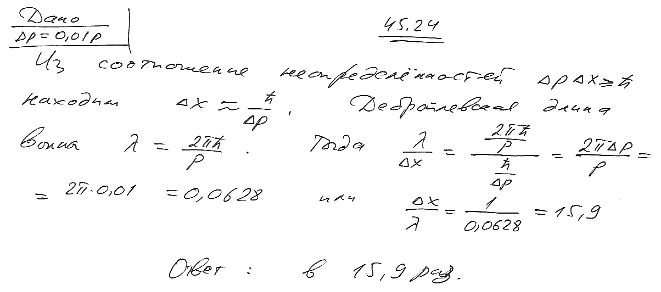 Дано
45.24
Δp=0,01p
Из соотношение неопределённостей Δp Δx ≥ ħ
находим Δx ≈ ħ/Δp. Дебройлевская длина
волна λ = 2πħ/p. Тогда λ/Δx = (2πħ/p)/(ħ/Δp) = 2πΔp/p =
= 2π·0,01 = 0,0628 или Δx/λ = 1/0,0628 = 15,9
Ответ: в 15,9 раз.